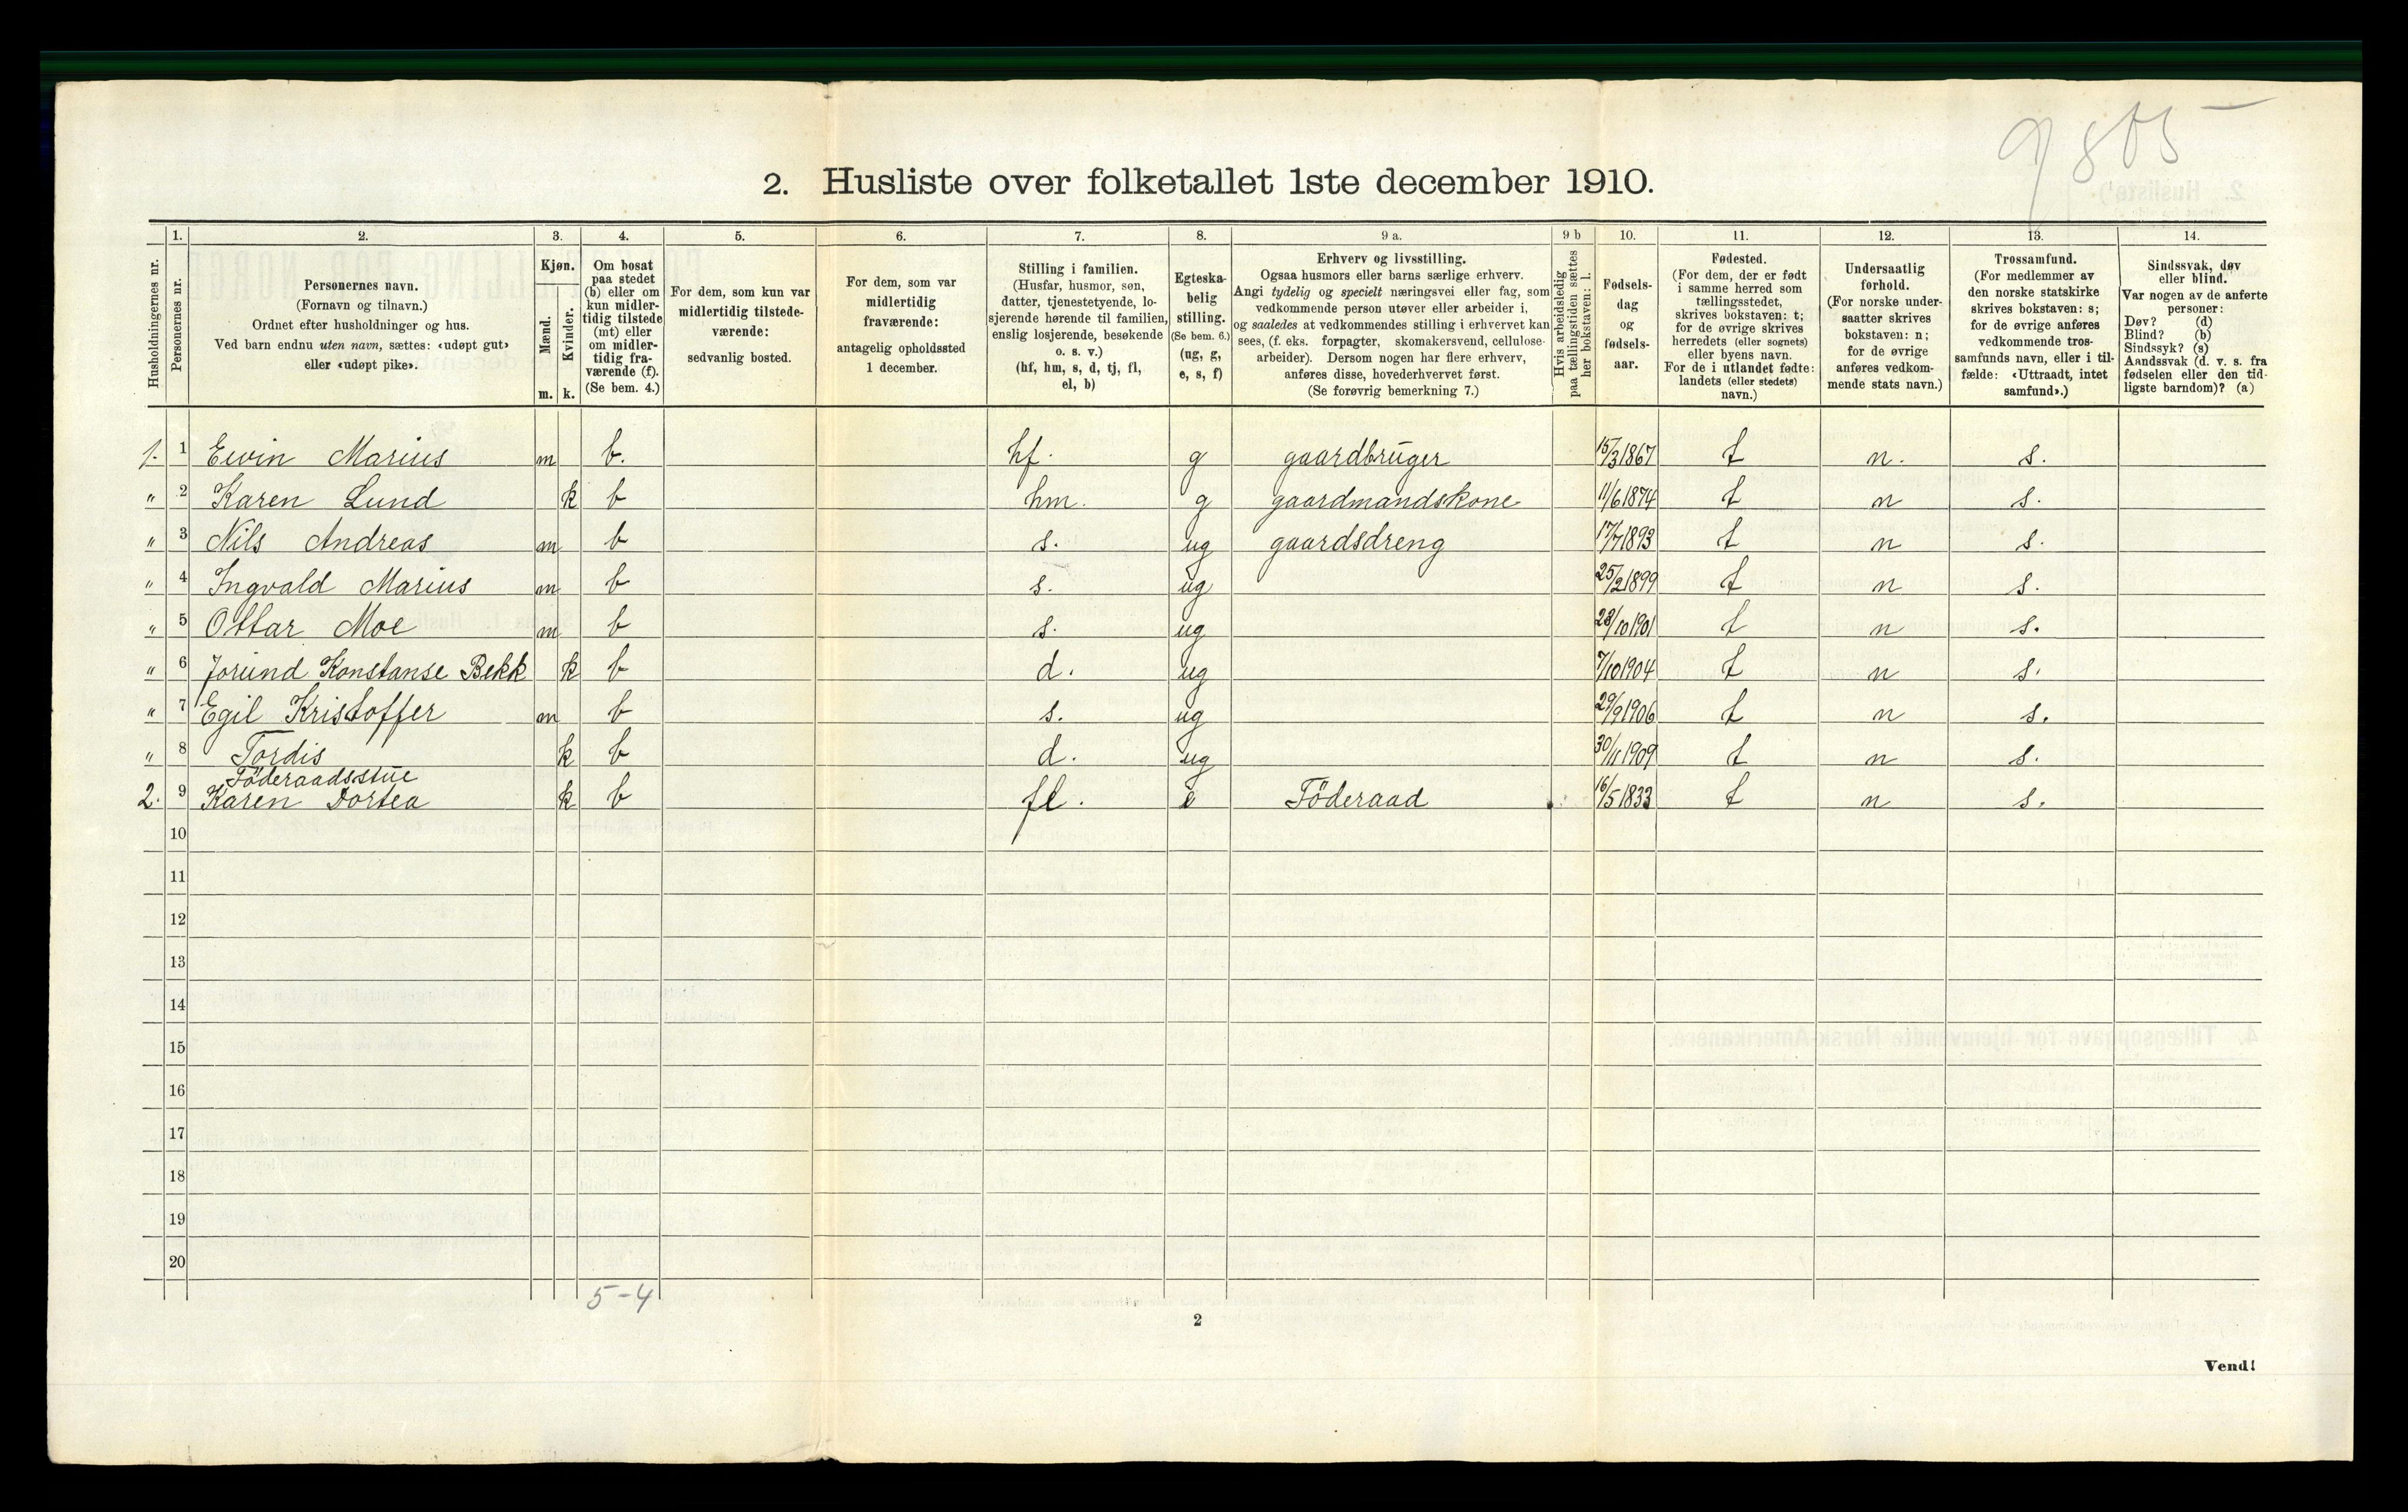 9 805
2. Husliste over folketallet 1ste december 1910.
Husholdningernes nr.
1. Personernes nr.
2. Personernes navn.
(Fornavn og tilnavn.)
Ordnet efter husholdninger og hus.
Ved barn endnu uten navn, sættes: «udøpt gut»
eller «udøpt pike».
3. Kjøn.
Mænd. m.
Kvinder. k.
4. Om bosat
paa stedet
(b) eller om
kun midler-
tidig tilstede
(mt) eller
om midler-
tidig fra-
værende (f).
(Se bem. 4.)
5. For dem, som kun var
midlertidig tilstede-
værende:
sedvanlig bosted.
6. For dem, som var
midlertidig
fraværende:
antagelig opholdssted
1 december.
7. Stilling i familien.
(Husfar, husmor, søn,
datter, tjenestetyende, lo-
sjerende hørende til familien,
enslig losjerende, besøkende
o. s. v.)
(hf, hm, s, d, tj, fl,
el, b)
8. Egteska-
belig
stilling.
(Se bem. 6.)
(ug, g,
e, s, f)
9 a. Erhverv og livsstilling.
Ogsaa husmors eller barns særlige erhverv.
Angi tydelig og specielt næringsvei eller fag, som
vedkommende person utøver eller arbeider i,
og saaledes at vedkommendes stilling i erhvervet kan
sees, (f. eks. forpagter, skomakersvend, cellulose-
arbeider). Dersom nogen har flere erhverv,
anføres disse, hovederhvervet først.
(Se forøvrig bemerkning 7.)
9 b Hvis arbeidsledig
paa tællingstiden sættes
her bokstaven: l.
10. Fødsels-
dag
og
fødsels-
aar.
11. Fødested.
(For dem, der er født
i samme herred som
tællingsstedet,
skrives bokstaven: t;
for de øvrige skrives
herredets (eller sognets)
eller byens navn.
For de i utlandet fødte:
landets (eller stedets)
navn.)
12. Undersaatlig
forhold.
(For norske under-
saatter skrives
bokstaven: n;
for de øvrige
anføres vedkom-
mende stats navn.)
13. Trossamfund.
(For medlemmer av
den norske statskirke
skrives bokstaven: s;
for de øvrige anføres
vedkommende tros-
samfunds navn, eller i til-
fælde: «Uttraadt, intet
samfund».)
14. Sindssvak, døv
eller blind.
Var nogen av de anførte
personer:
Døv? (d)
Blind? (b)
Sindssyk? (s)
Aandssvak (d. v. s. fra
fødselen eller den tid-
ligste barndom)? (a)
1. 1 Eivin Marius m b. hf. g gaardbruger 15/3 1867 t n. s.
" 2 Karen Lund k b hm. g gaardmandskone 11/6 1874 t n s.
" 3 Nils Andreas m b s. ug gaardsdreng 17/7 1893 t n s.
" 4 Ingvald Marius m b s. ug 25/2 1899 t n s.
" 5 Ottar Moe m b s. ug 28/10 1901 t n s.
" 6 Jorund Konstanse Bekk k b d. ug 7/10 1904 t n s.
" 7 Egil Kristoffer m b s. ug 29/9 1906 t n s.
" 8 Tordis k b d. ug 30/11 1909 t n s.
Föderaadsstue
2. 9 Karen Dortea k b fl. e Föderaad 16/5 1833 t n s.
10
11
12
13
14
15
16
17
18
19
20
5-4
2
Vend!